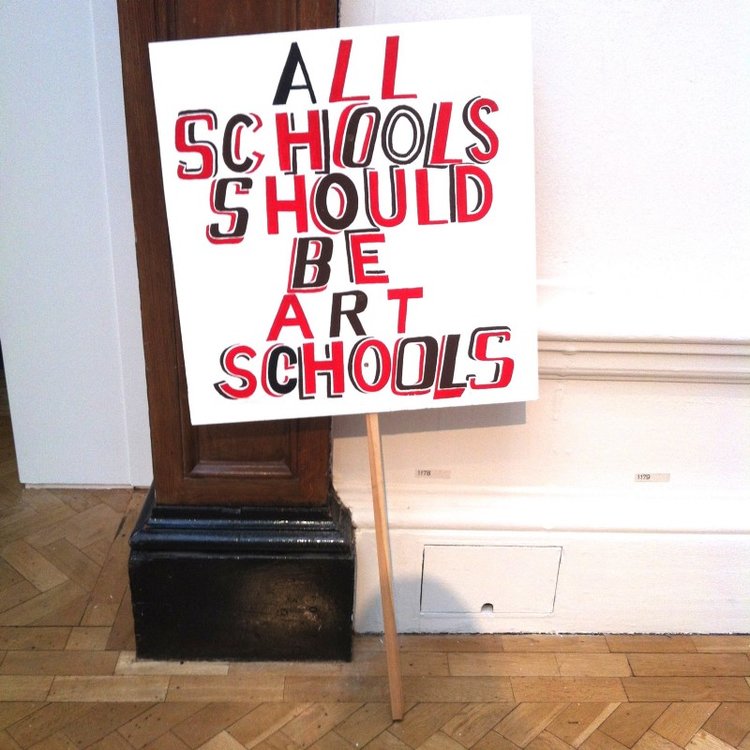 ALL
SCHOOLS
SHOULD
BE
ART
SCHOOLS
1178
1179